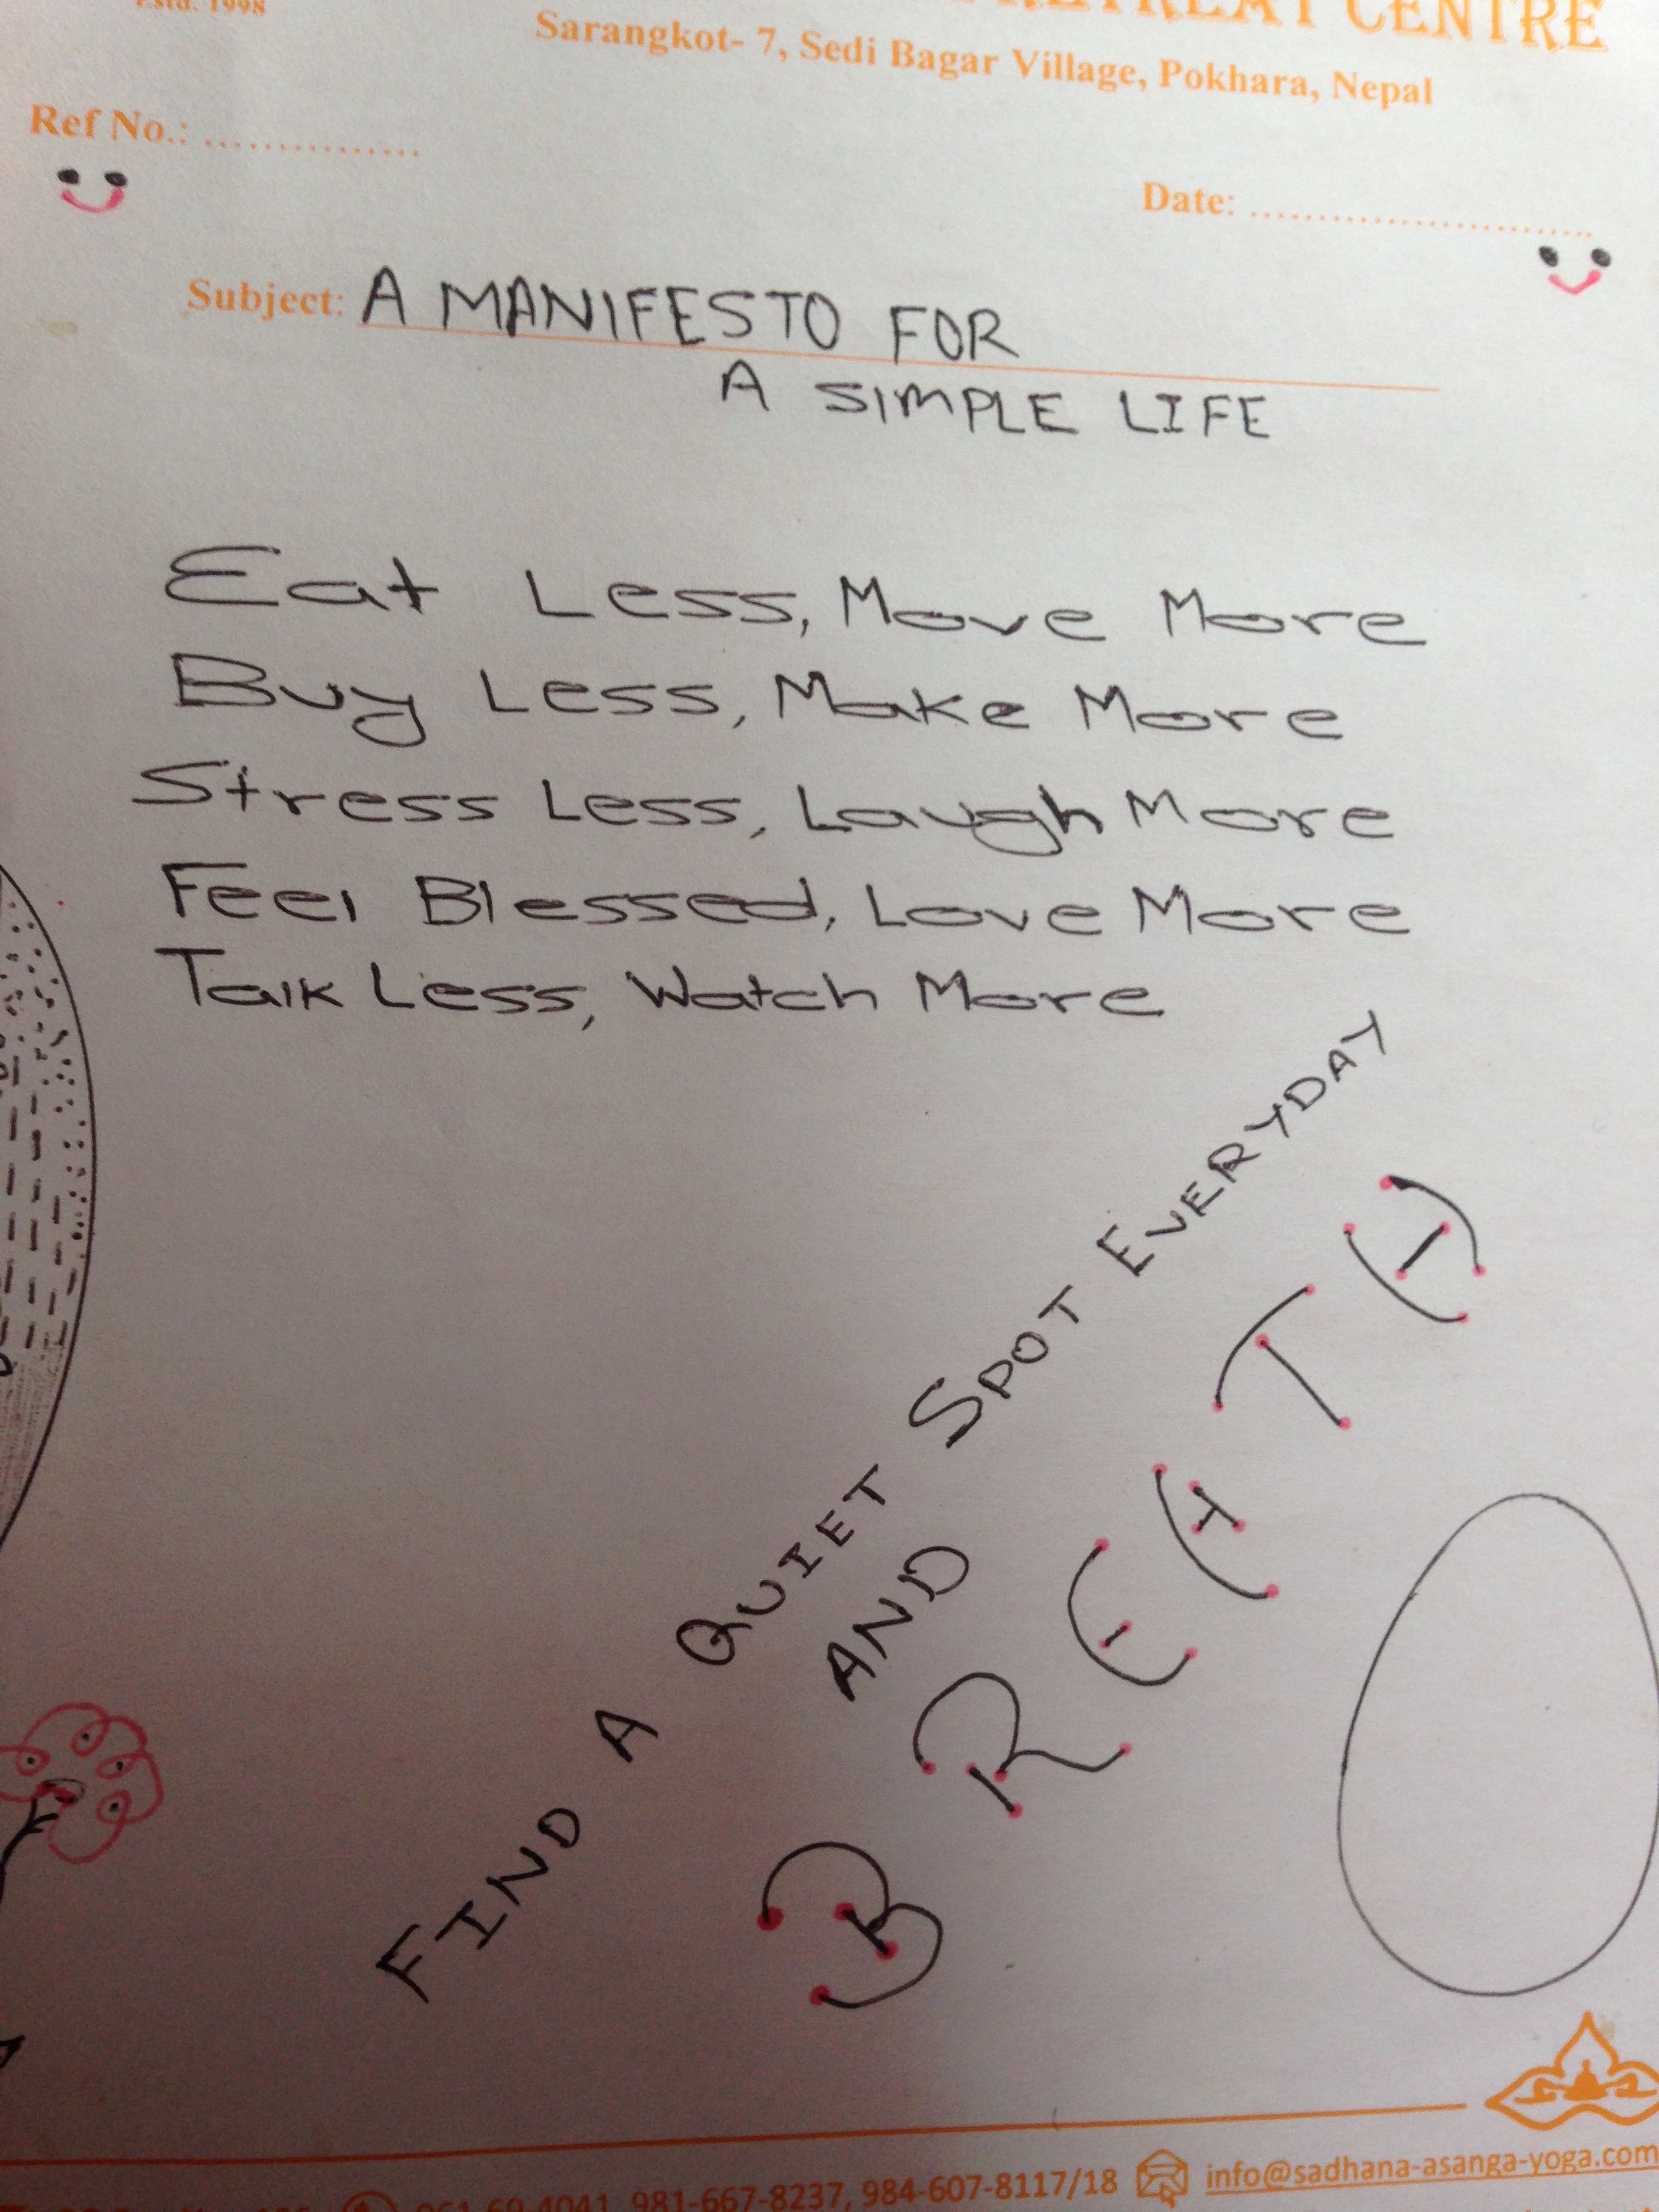 Estd. 1998
RETREAT CENTRE
Sarangkot- 7, Sedi Bagar Village, Pokhara, Nepal
Ref No.: ...............
Date: ..............................
Subject: A MANIFESTO FOR
A SIMPLE LIFE
Eat Less, Move More
Buy Less, Make More
Stress Less, Laugh More
Feel Blessed, Love More
Talk Less, Watch More
FIND A QUIET SPOT EVERYDAY
AND
BREATH
061-69-4041, 981-667-8237, 984-607-8117/18 info@sadhana-asanga-yoga.com